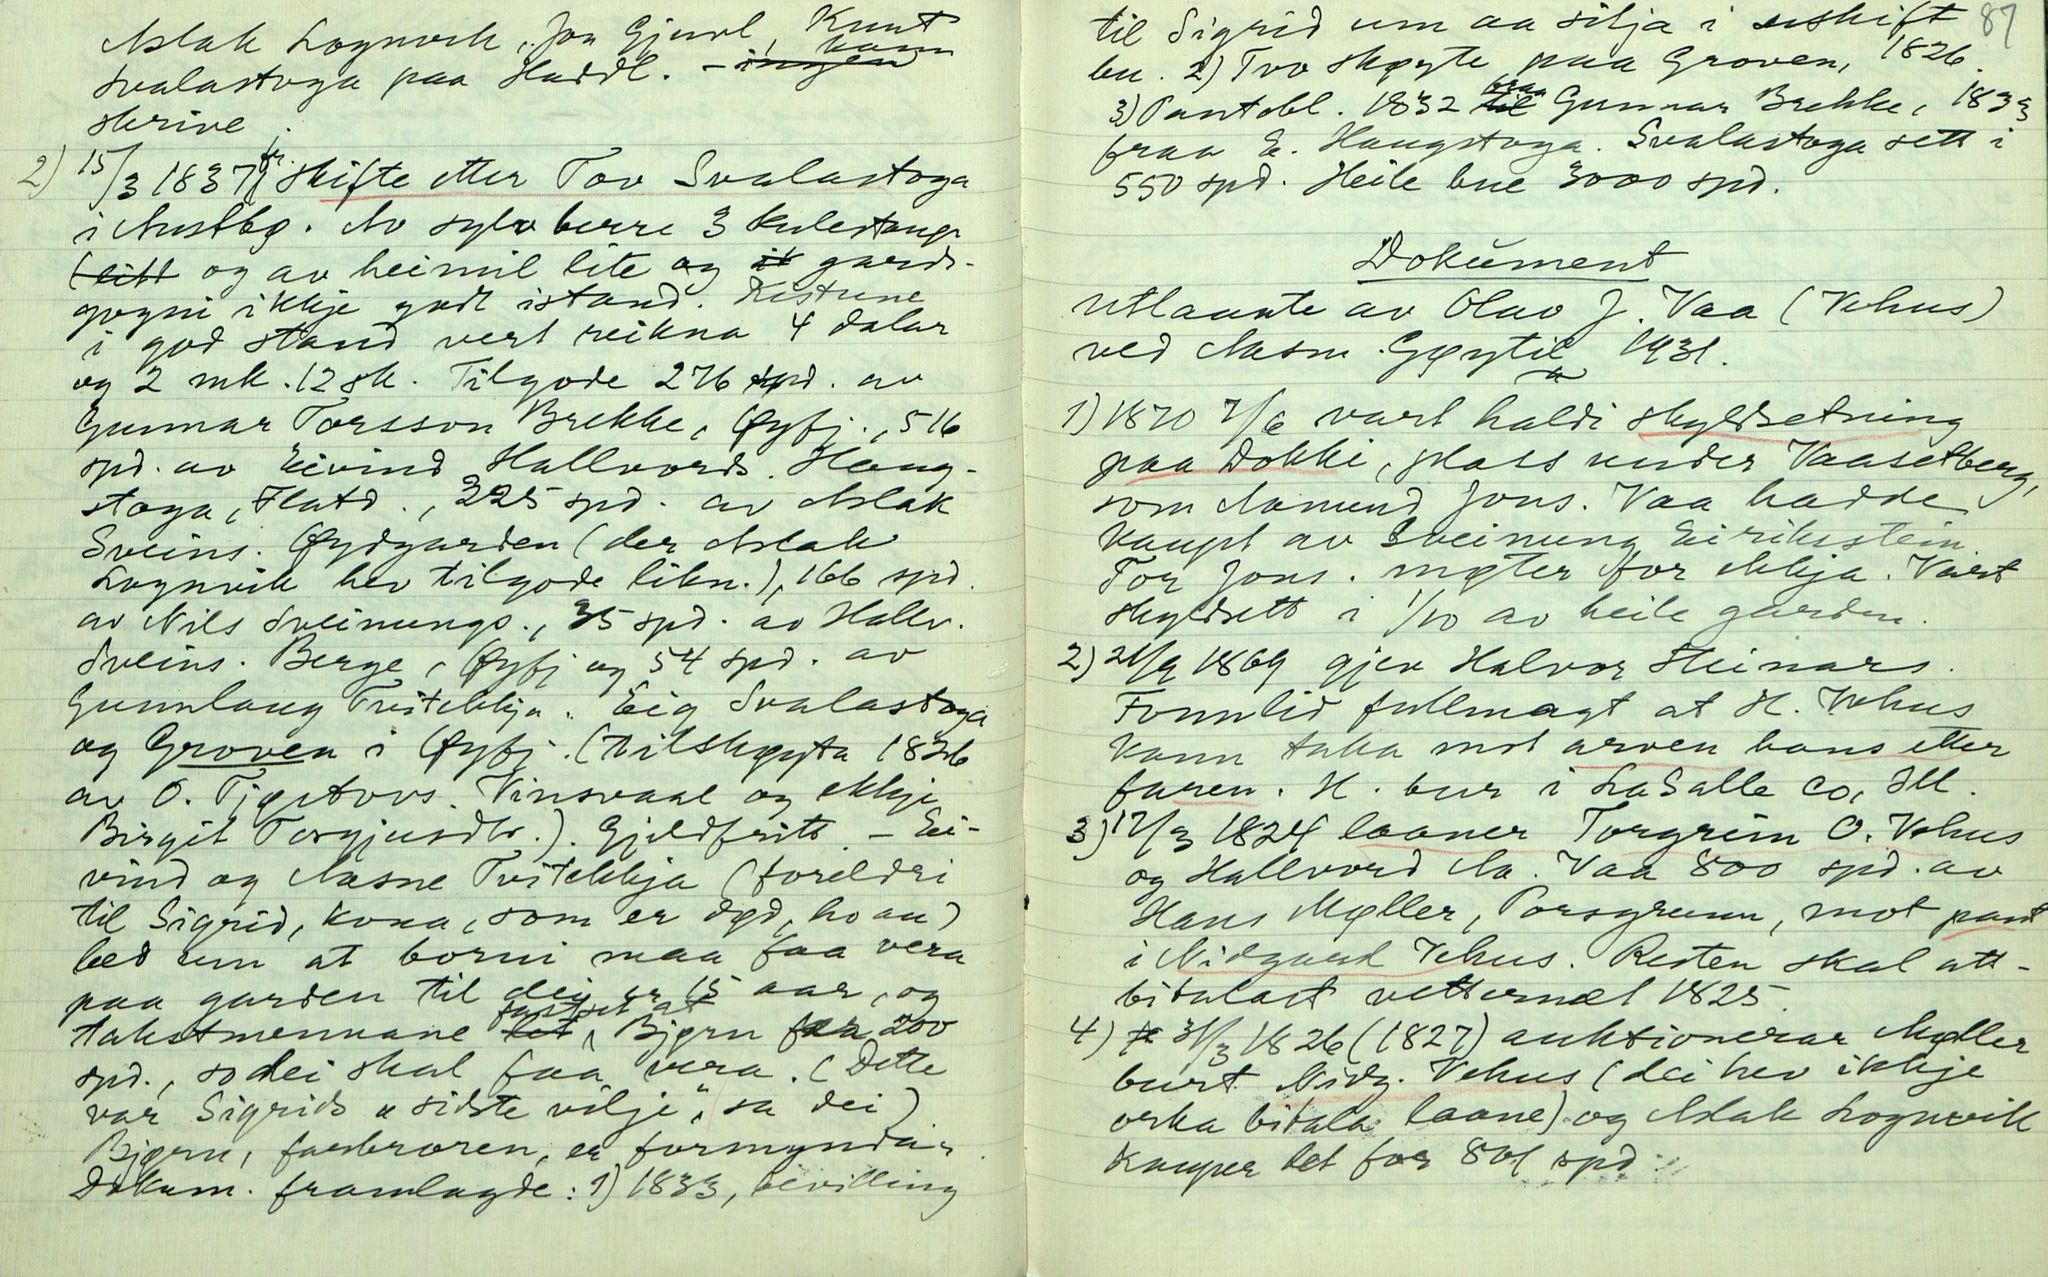 Aslak Lognvik, Jon Gjuvl, Knut
Svalastoga paa Haddl. – ingen kann
skrive.
2) 15/3 1837 fr. skifte etter Tov Svalastoga
i Austbø. Av sylv berre 3 kulestaup
(litt og av heimil lite og it gards-
gogni ikkje godt istand. Kistune
i god stand vert reikna 4 dalar
og 2 mk. 12 sk. Tilgode 276 spd. av
Gunnar Torsson Brekke, Øyfj., 516
spd. av Eivind Hallvords. Haug-
stoga, Flatd., 225 spd. av Aslak
Sveins. Øydgarden (der Aslak
Lognvik hev tilgode likn.), 166 spd.
av Nils Sveinungs., 35 spd. av Hallv.
Sveins. Berge, Øyfj og 54 spd. av
Gunnlaug Tveitekkja. Eig Svalastoga
og Groven i Øyfj. (tilskøyta 1826
av O. Tjøstovs. Vinsvaal og ekkje
Birgit Torgjusdtr.). Gjeldfritt – Ei-
vind og Aasne Tveitekkja (foreldri
til Sigrid, kona, som er død, ho au)
bed um at borni maa faa vera
paa garden til dei er 15 aar, og
takstmennane let fastset at Bjørn faa 200
spd., so dei skal faa vera. (Dette
var Sigrids "sidste vilje", sa dei)
Bjørn, farbroren, er formyndar.
Dokum. framlagde: 1) 1833, bevilling
87
til Sigrid um aa sitja i uskift
bu. 2) Tvo skøyte paa Groven, 1826.
3) Pantobl. 1832 til fraa Gunnar Brekke, 1833
fraa E. Haugstoga. Svalastoga sett i
550 spd. Heile bue 3000 spd.
Dokument
utlaante av Olav J. Vaa (Vehus)
ved Aasm. Gøytil 1931.
1) 1870 7/6 vart haldi skyldsetning
paa Dokki, plass under Vaasetberg,
som Aamund Jons. Vaa hadde
kaupt av Sveinung Eiriksstein.
Tor Jons. møter for ekkja. Vart
skyldsett i 1/10 av heile garden.
2) 21/9 1869 gjev Halvor Steinars.
Fonnlid fullmagt at H. Vehus
kann taka mot arven hans etter
faren. H. bur i LaSalle Co, Ill.
3) 17/3 1824 laaner Torgrim O. Vehus
og Hallvord Aa. Vaa 800 spd. av
Hans Møller, Porsgrunn, mot pant
i Nidgard Vehus. Resten skal att-
bitalast vetternæt 1825
4) 31/3 1826 (1827) auktionerar Møller
burt Nidg. Vehus (dei hev ikkje
orka bitala laane) og Aslak Lognvik
kauper det for 801 spd.